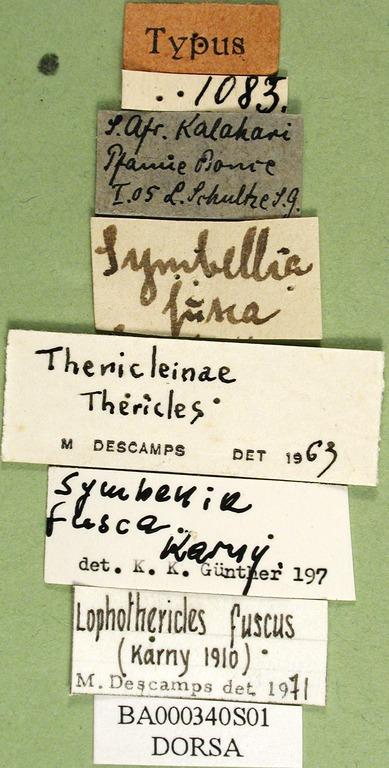 Typus
..1083.
S. Afr. Kalahari
Pfanne Bonce
I.05 L. Schultze S.g.
Symbellia
fusca
Thericleinae
Thericles.
M DESCAMPS DET 1963
Symbellia
fusca.
Karny.
det. K. K. Günther 197
Lophothericles fuscus
(Karny 1910).
M. Descamps det. 1971
BA000340S01
DORSA